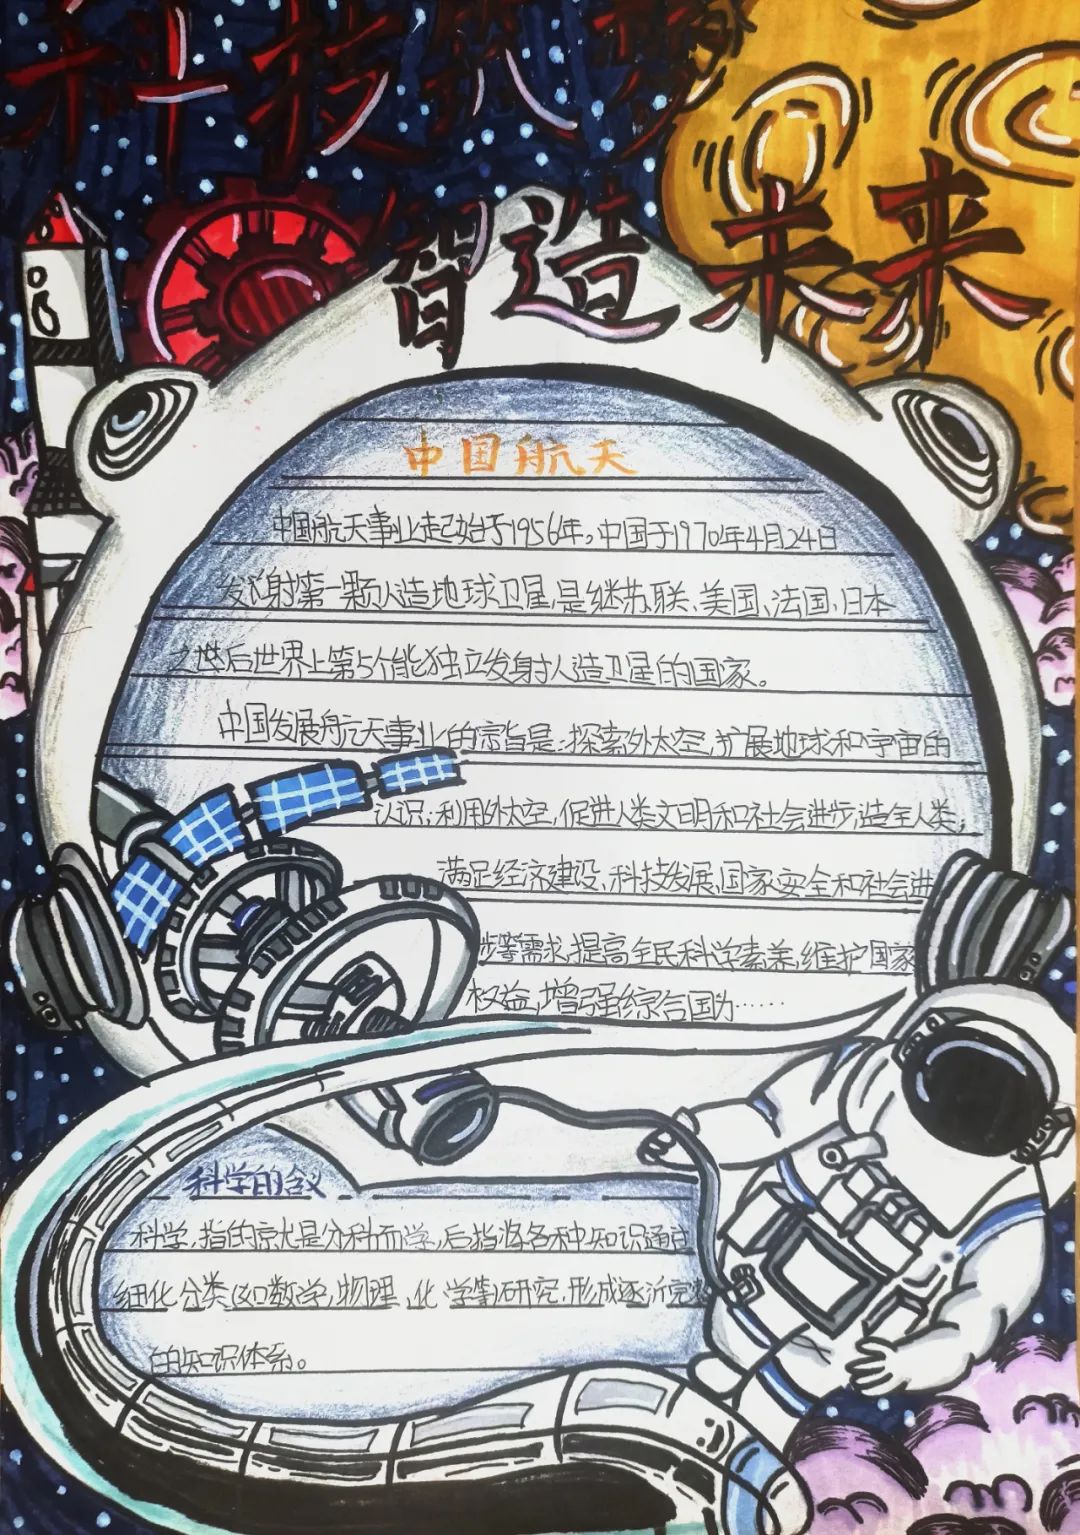 科技筑梦
智造未来
中国航天
中国航天事业起始于1956年。中国于1970年4月24日
发射第一颗人造地球卫星,是继苏联、美国、法国、日本
之后世界上第5个能独立发射人造卫星的国家。
中国发展航天事业的宗旨是:探索外太空,扩展地球和宇宙的
认识;利用外太空,促进人类文明和社会进步,造全人类;
满足经济建设、科技发展、国家安全和社会进
步等需求,提高全民科学素养,维护国家
权益,增强综合国力……
科学的含义
科学,指的就是分科而学,后指将各种知识通过
细化分类(如数学,物理,化学等)研究,形成逐渐完整
的知识体系。